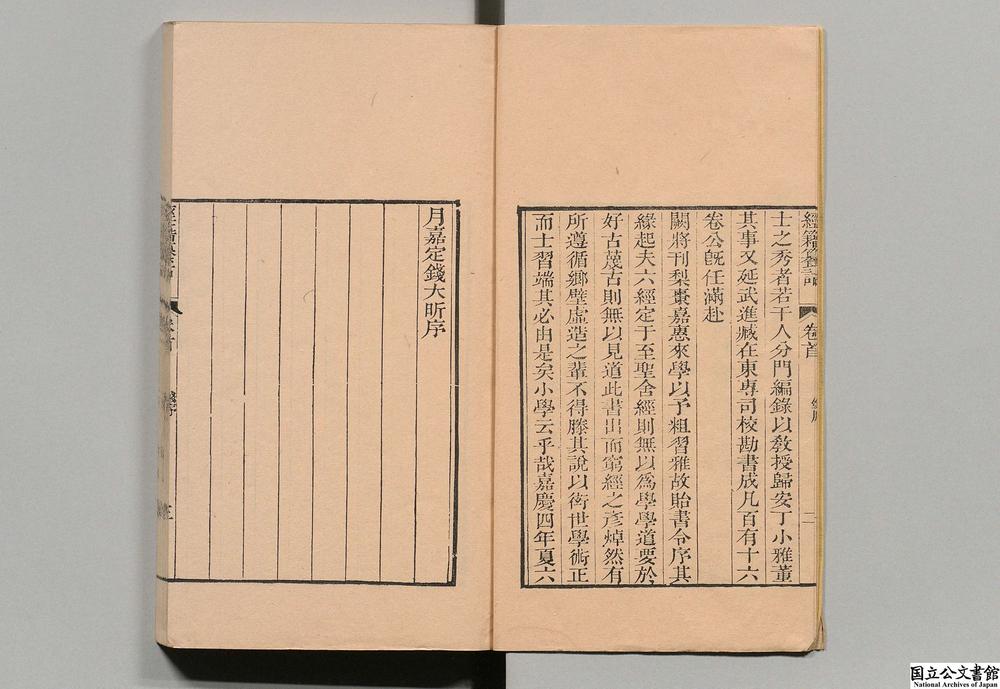 經籍籑詁 卷首 二
士之秀者若干人分門編錄以敎授歸安丁小雅董
其事又延武進臧在東專司校勘書成凡百有十六
卷公旣任滿赴
闕將刊梨棗嘉惠來學以予粗習雅故貽書令序其
緣起夫六經定于至聖舍經則無以爲學學道要於
好古蔑古則無以見道此書出而窮經之彥焯然有
所遵循鄉壁虛造之輩不得滕其說以衒世學術正
而士習端其必由是矣小學云乎哉嘉慶四年夏六
月嘉定錢大昕序
国立公文書館
National Archives of Japan